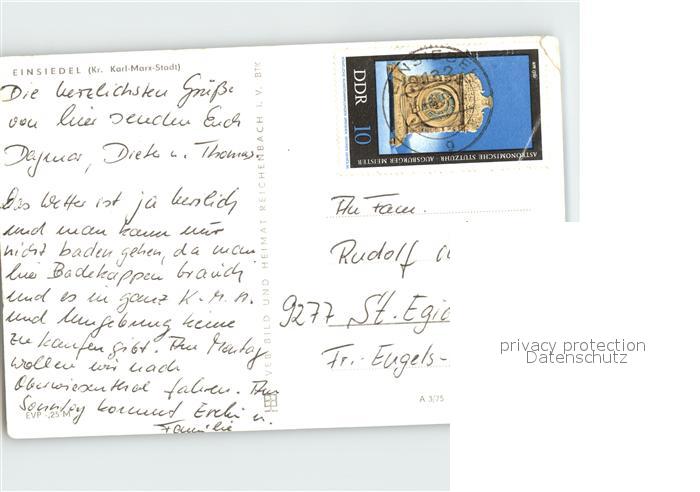 EINSIEDEL (Kr. Karl-Marx-Stadt)
Die herzlichsten Grüße
von hier senden Euch
Dagmar, Dieter u. Thomas.
Das Wetter ist ja herrlich
und man kann nur
nicht baden gehen, da man
hier Badekappen brauch
und es in ganz K.-M.-St.
und Umgebung keine
zu kaufen gibt. Am Montag
wollen wir nach
Oberwiesenthal fahren. Am
Sonntag kommt u.
Familie
EVP -,25 M
VEB BILD UND HEIMAT REICHENBACH I. V. BTK
DDR 10
ASTRONOMISCHE STUTZUHR · AUGSBURGER MEISTER
An Fam.
Rudolf
9277 St. Egid
Fr.-Engels-
A 3/75
privacy protection
Datenschutz